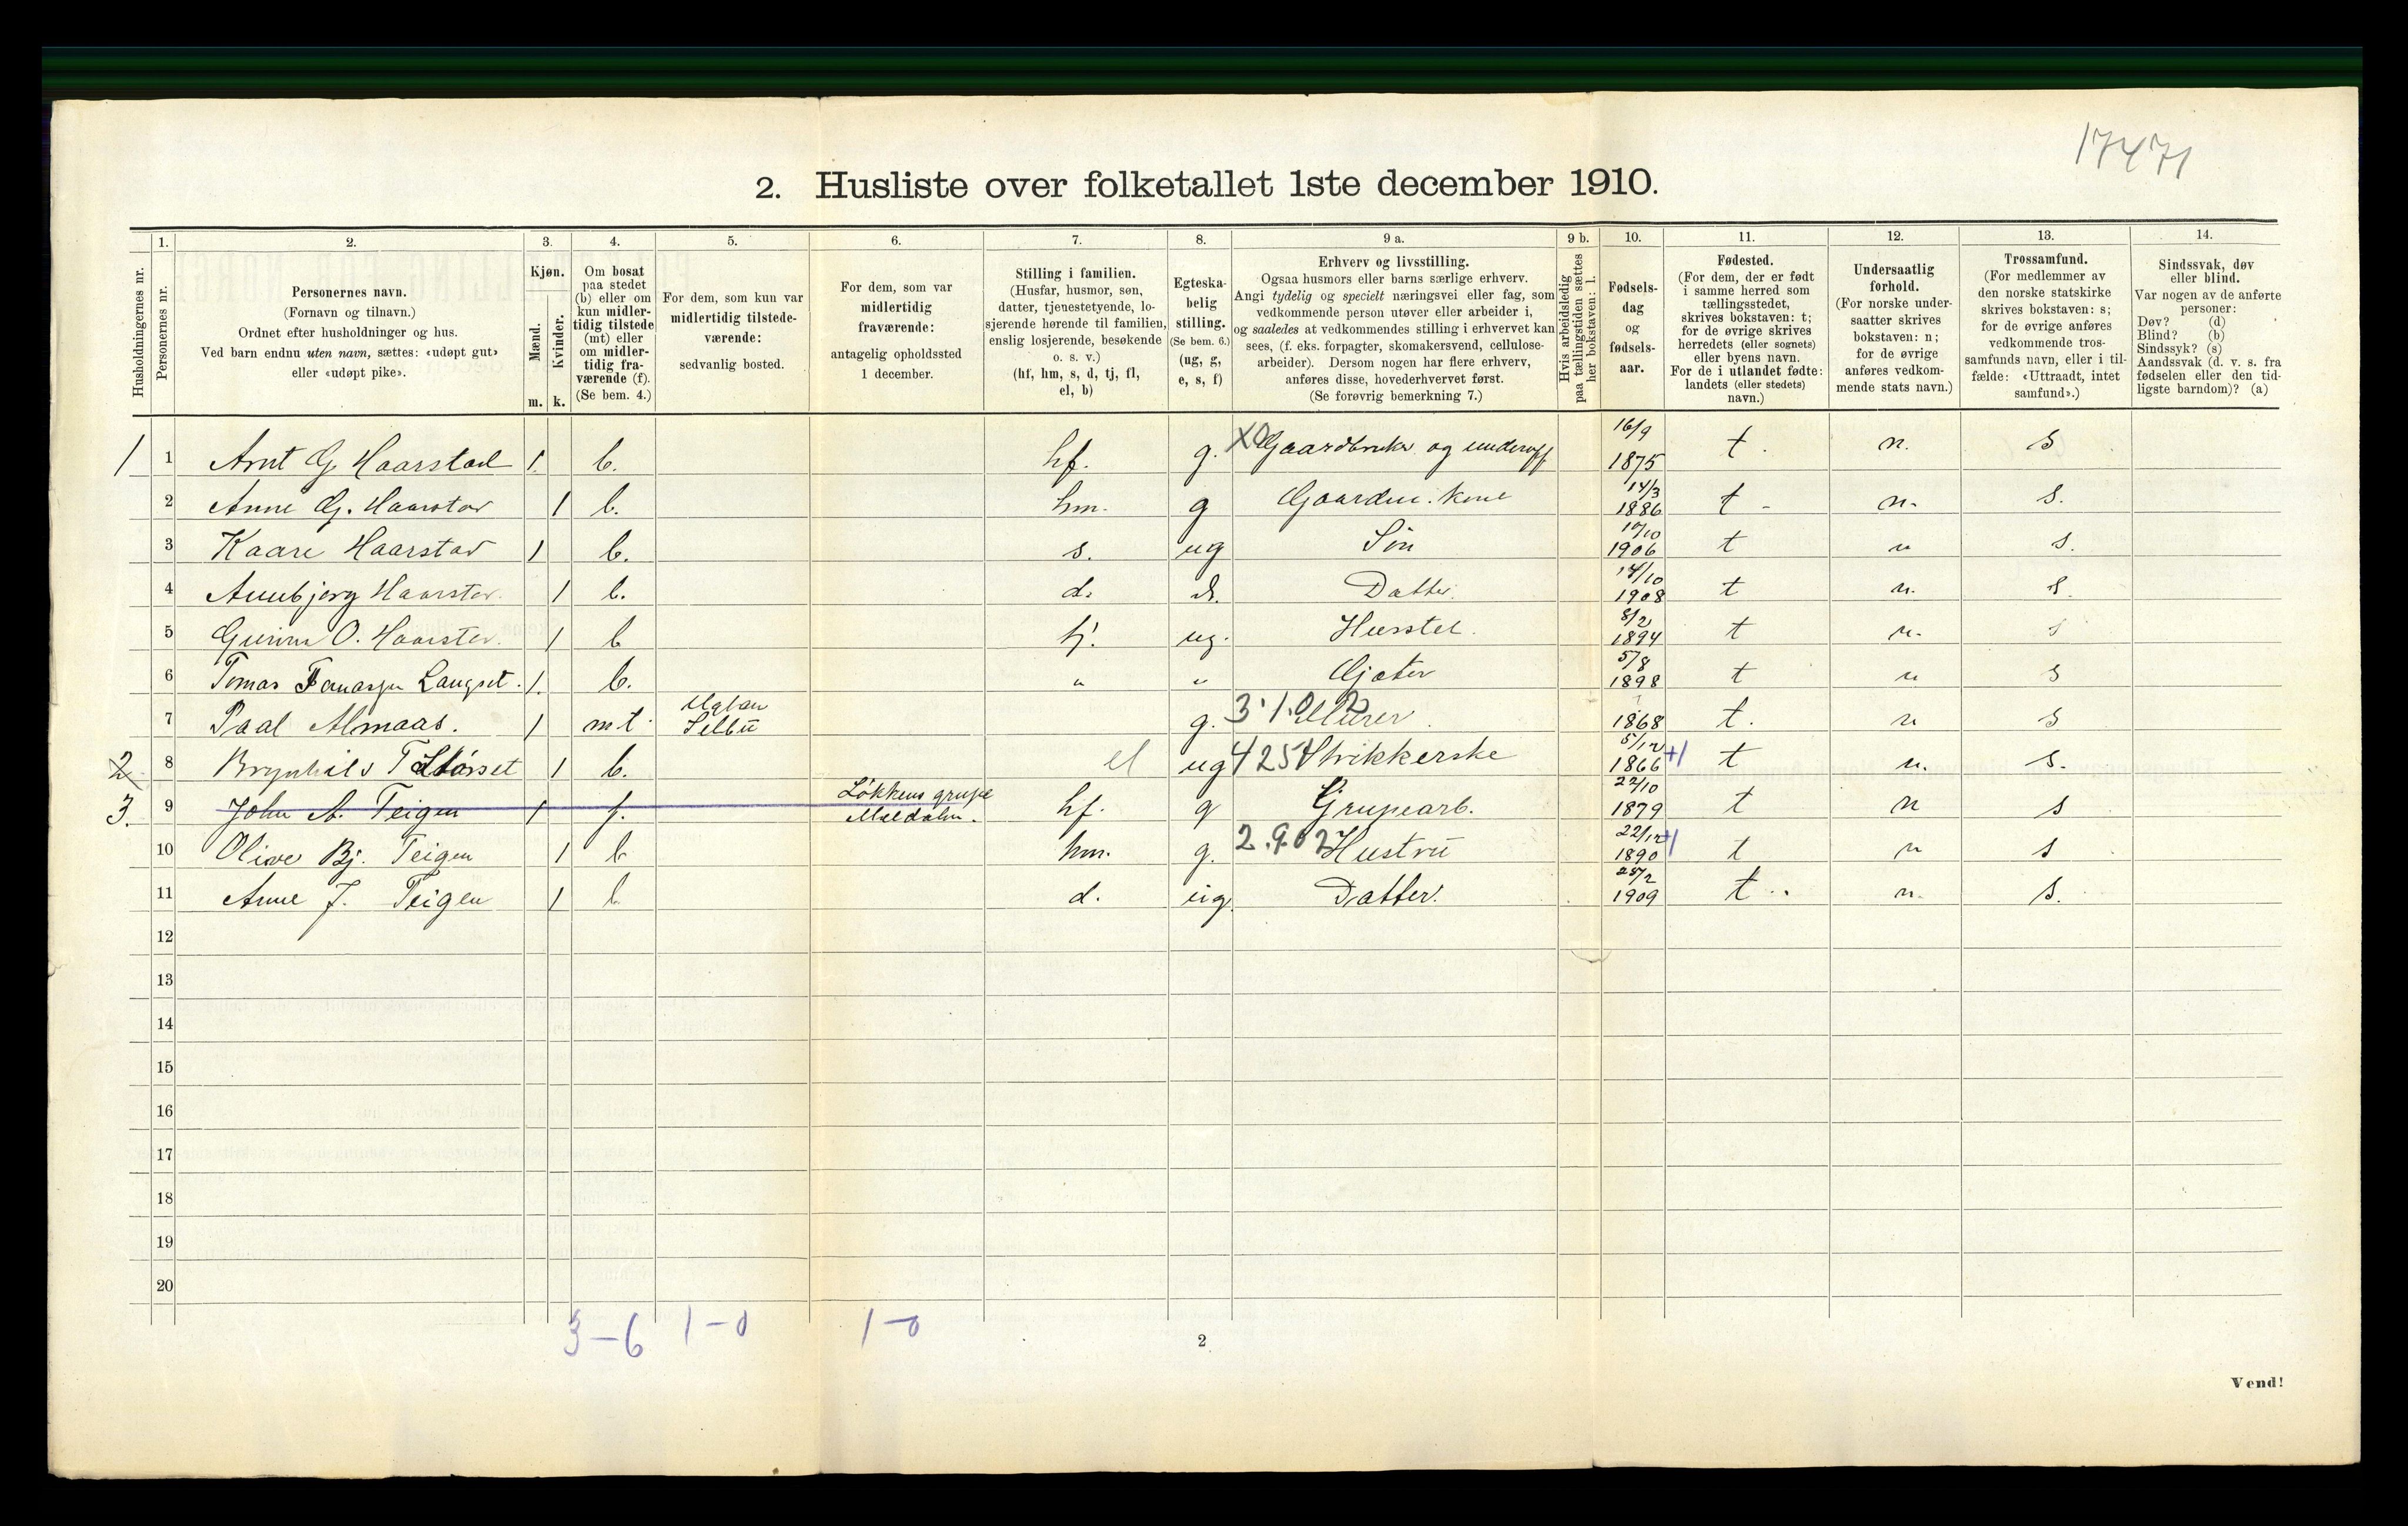 17471
2. Husliste over folketallet 1ste december 1910.
1. 2. 3. 4. 5. 6. 7. 8. 9 a. 9 b. 10. 11. 12. 13. 14.
Husholdningernes nr.
Personernes nr.
Personernes navn.
(Fornavn og tilnavn.)
Ordnet efter husholdninger og hus.
Ved barn endnu uten navn, sættes: «udøpt gut»
eller «udøpt pike».
Kjøn.
Mænd.
Kvinder.
m. k.
Om bosat
paa stedet
(b) eller om
kun midler-
tidig tilstede
(mt) eller
om midler-
tidig fra-
værende (f).
(Se bem. 4.)
For dem, som kun var
midlertidig tilstede-
værende:
sedvanlig bosted.
For dem, som var
midlertidig
fraværende:
antagelig opholdssted
1 december.
Stilling i familien.
(Husfar, husmor, søn,
datter, tjenestetyende, lo-
sjerende hørende til familien,
enslig losjerende, besøkende
o. s. v.)
(hf, hm, s, d, tj, fl,
el, b)
Egteska-
belig
stilling.
(Se bem. 6.)
(ug, g,
e, s, f)
Erhverv og livsstilling.
Ogsaa husmors eller barns særlige erhverv.
Angi tydelig og specielt næringsvei eller fag, som
vedkommende person utøver eller arbeider i,
og saaledes at vedkommendes stilling i erhvervet kan
sees, (f. eks. forpagter, skomakersvend, cellulose-
arbeider). Dersom nogen har flere erhverv,
anføres disse, hovederhvervet først.
(Se forøvrig bemerkning 7.)
Hvis arbeidsledig
paa tællingstiden sættes
her bokstaven: l.
Fødsels-
dag
og
fødsels-
aar.
Fødested.
(For dem, der er født
i samme herred som
tællingsstedet,
skrives bokstaven: t;
for de øvrige skrives
herredets (eller sognets)
eller byens navn.
For de i utlandet fødte:
landets (eller stedets)
navn.)
Undersaatlig
forhold.
(For norske under-
saatter skrives
bokstaven: n;
for de øvrige
anføres vedkom-
mende stats navn.)
Trossamfund.
(For medlemmer av
den norske statskirke
skrives bokstaven: s;
for de øvrige anføres
vedkommende tros-
samfunds navn, eller i til-
fælde: «Uttraadt, intet
samfund».)
Sindssvak, døv
eller blind.
Var nogen av de anførte
personer:
Døv? (d)
Blind? (b)
Sindssyk? (s)
Aandssvak (d. v. s. fra
fødselen eller den tid-
ligste barndom)? (a)
1 1 Arnt G. Haarstad 1. b. hf. g. X Gaardbruker og underoff 16/9 1875 t. n. s
2 Anne G. Haarstad 1 b. hm. g Gaardm. kone 14/3 1886 t - n. s.
3 Kaare Haarstad 1 b. s. ug Søn 10/10 1906 t n s.
4 Annbjørg Haarstad. 1 b. d. Datter. 14/10 1908 t n. s.
5 O. Haarstad. 1 b tj. ug. 8/2 1894 t n. s
6 Tomas Langset. 1. b. " " Gjæter 5/8 1898 t n s
7 Paal Almaas. 1 mt. Selbu g. Murer. 1868 t. n s
2 8 Brynhild T 1 b. el ug 425 Strikkerske 5/12 1866 +1 t n. s.
3. 9 John A. Teigen 1 f. Løkkens grupe Meldalen. hf. g Grupearb. 22/10 1879 t n s
10 Olive Bj. Teigen 1 b hm. g. 2.902 Hustru 22/12 1890 +1 t n s
11 Anne J. Teigen 1 b d. ug. Datter. 1909 t.. n. s.
12
13
14
15
16
17
18
19
20
3-6 1-0 1-0
2
Vend!